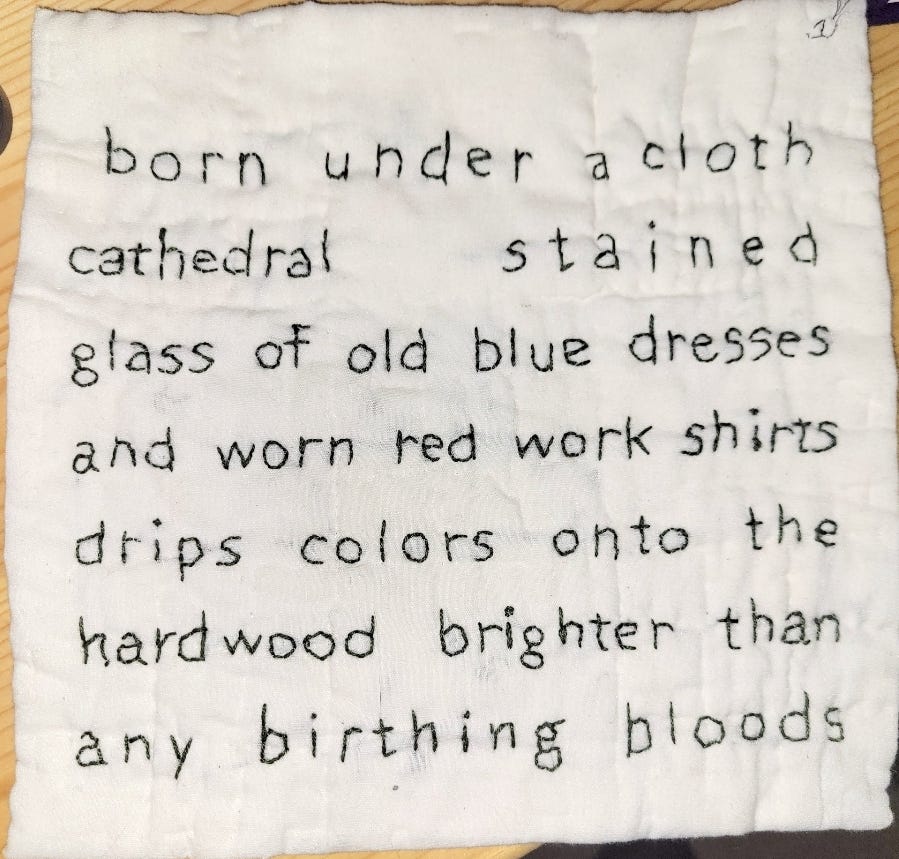 1
born under a cloth
cathedral stained
glass of old blue dresses
and worn red work shirts
drips colors onto the
hardwood brighter than
any birthing bloods